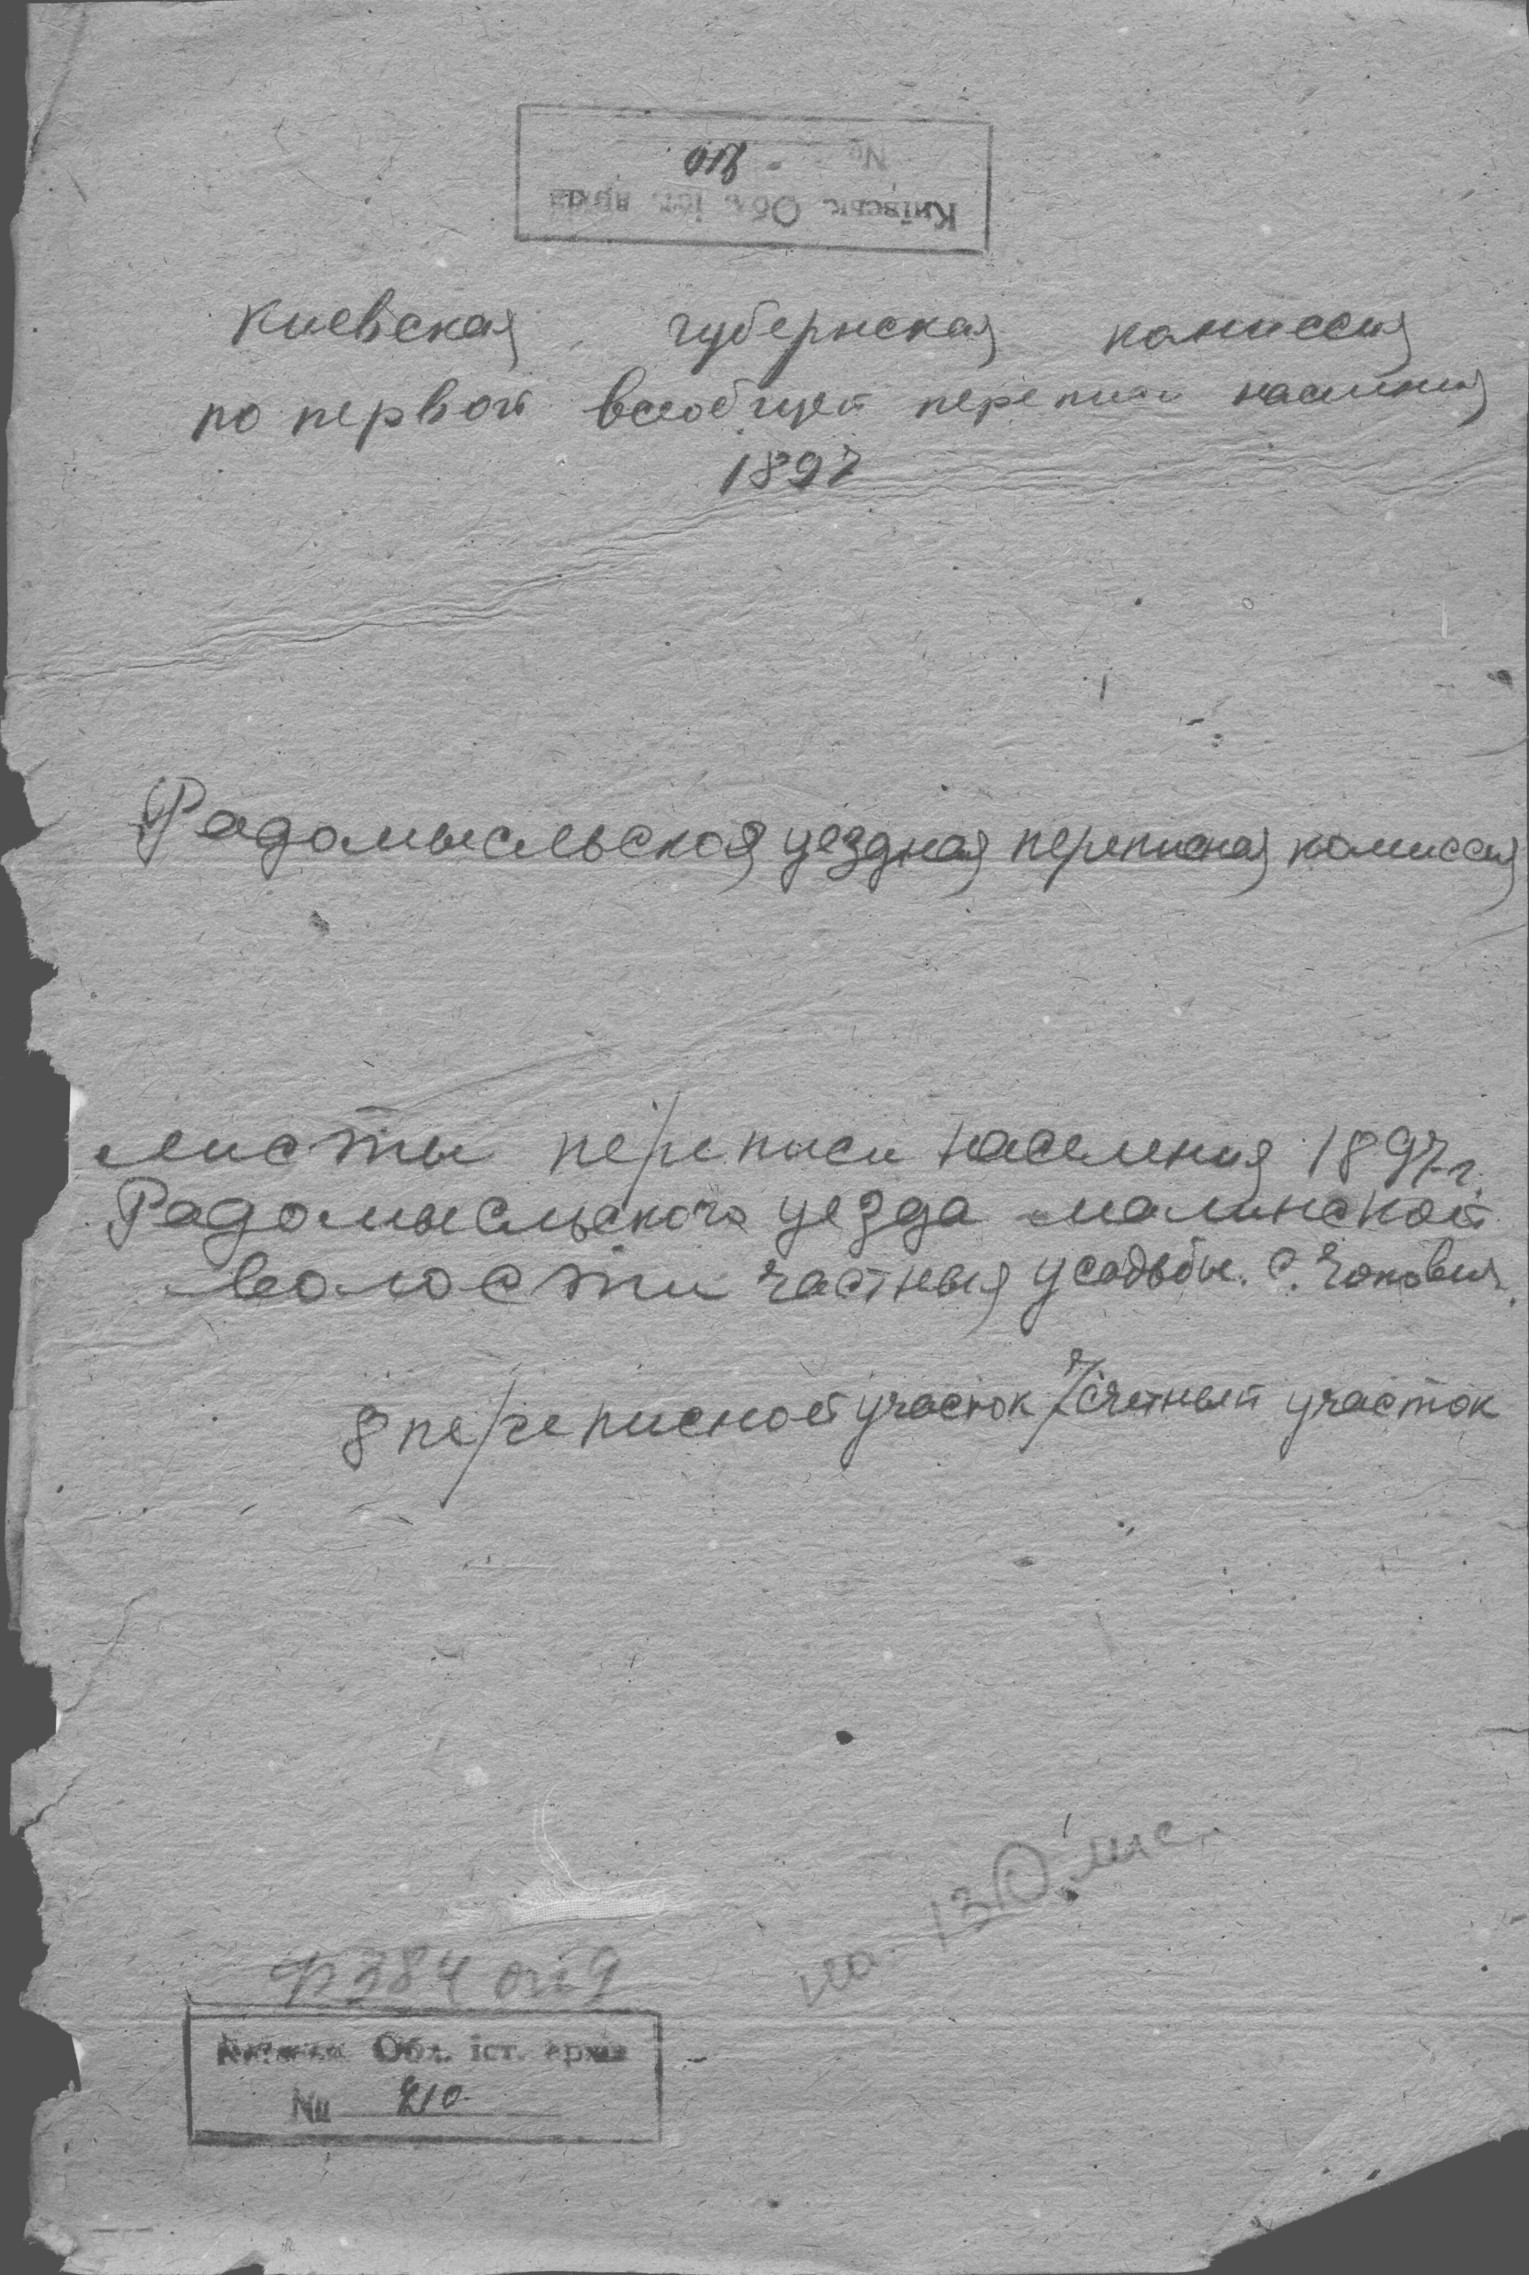 Київськ. Обл. іст. архів
№ 210
Киевская губернская комиссия
по первой всеобщей переписи населения
1897
Радомысльская уездная переписная комиссия
листы переписи населения 1897 г.
Радомысльского уезда малинской
волости частныя усадьбы. с. Чоповичи.
8 переписной участок 7 счетный участок
на 130 лис.
Ф 384 оп 9
Київськ. Обл. іст. архів
№ 210